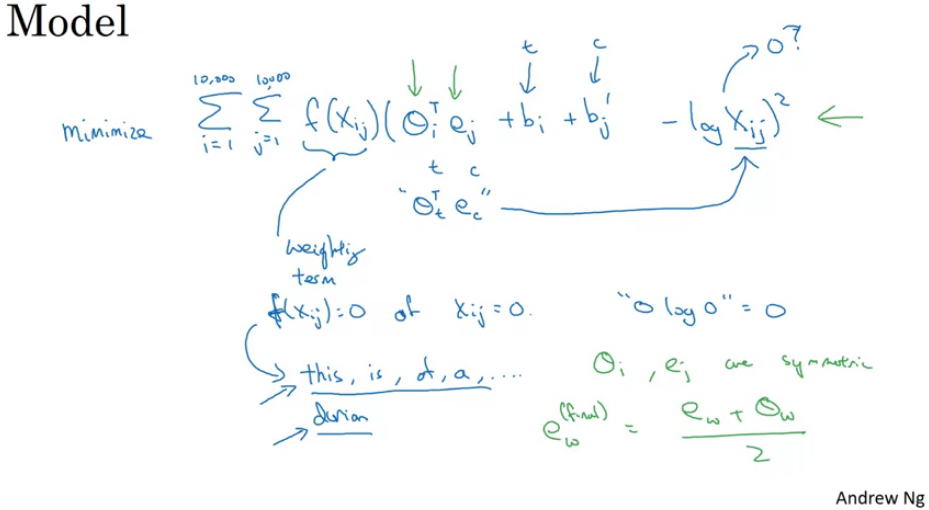 Model
t c 0?
minimize 10,000 Σ i=1 10,000 Σ j=1 f(X_ij) (θ_i^T e_j + b_i + b_j' - log X_ij)^2
t c
"θ_t^T e_c"
weighting
term
f(X_ij)=0 if X_ij=0. "0 log 0" = 0
this, is, of, a, .... θ_i, e_j are symmetric
durian
e_w^(final) = (e_w + θ_w) / 2
Andrew Ng